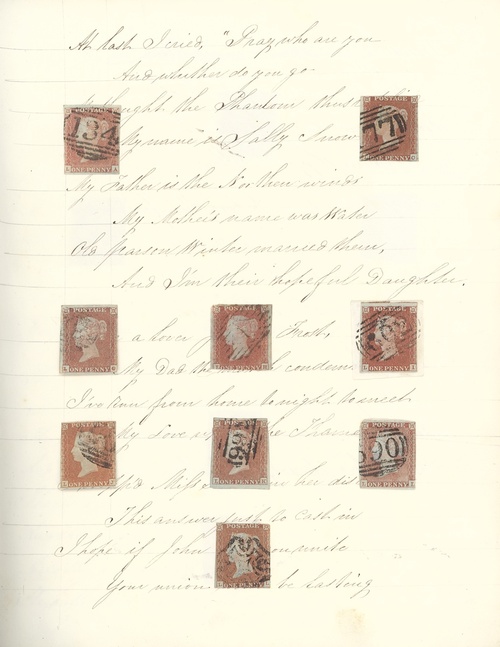 At last I cried, "Pray who are you
And whether do you go
thought the Phantom thus
My name is Sally Snow
My Father is the Northen winds
My Mother's name was Water
Old parson Winter married them,
And I'm their hopeful Daughter.
a lover Frost
My Dad the condem
I've run from home to night to meet
My Love the Thame
Miss her dis
This answer just to cast in
I hope if John unite
Your union be lasting
POSTAGE
ONE PENNY
134
POSTAGE
ONE PENNY
77
POSTAGE
ONE PENNY
POSTAGE
ONE PENNY
POSTAGE
ONE PENNY
POSTAGE
ONE PENNY
POSTAGE
ONE PENNY
POSTAGE
ONE PENNY
POSTAGE
ONE PENNY